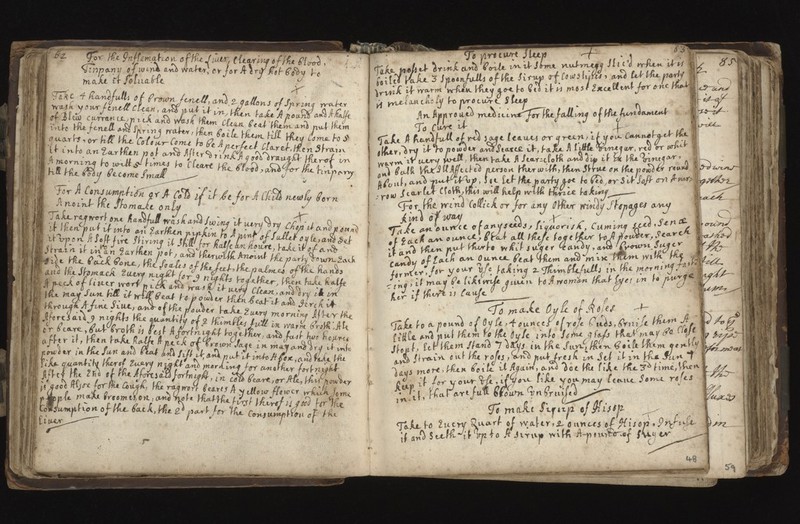 62
For the Inflamation of the Liver, Clearing of the blood,
Timpany of wind and water, or for A dry hot body to
make it Soluable
Take 4 handfulls of brown fenell, and 2 gallons of Spring water
wash your fenell Clean, and put it in, then take A pound and A halfe
of Blew currance, pick and wash them Clean beat them and put them
into the fenell and Spring water, then boile them till they Come to 5
quarts, or till the Collour Come to be A perfect Claret, then Strain
it into an Earthen pot and After drink A good draught therof in
A morning to will 5 times to Cleare the blood, and for the timpany
till the body become Small
For A Consumption or A Cold if it be for A Child newly born
Anoint the Stomacke only
Take ragwort one handfull wash and Swing it very dry Chop it and pound
it then put it into an Earthen pipkin to A pint of Sallet oyle, and Set
it upon A Soft fire Stiring it Still for halfe an houre, take it of and
Strain it into an Earthen pot, and therwith Anoint the party down Each
Side the back bone, the Soales of the feet, the palmes of the hands
and the Stomack Every night for 9 nights together, then take halfe
A peck of liver wort pick and wash it very Clean, and dry it in
the may Sun till it will beat to powder then beat it and Serch it
through A fine Sive, and of the powder take Every morning After the
Aforesaid 9 nights the quantity of 2 thimbles full in warm broth, Ale
or beare, but broth is best A fortnight together, and fast two houres
after it, then take halfe A peck of brown Sage in may and dry it into
powder in the Sun and beat and Sift it, and put it into A box, and take the
like quantity therof Every night and morning for another fortnight
After the End of the Aforesaid fortnight, in Cold beare, or Ale, this powder
is good Alsoe for the Cough, the ragwort beares A yellow flower which Some
people make broomes on, and note that the first therof is good for the
Consumption of the back, the 2d part for the Consumption of the
Liver
To procure Sleep
63
Take posset drink and boile in it Some nutmegg Slic'd when it is
boiled take 3 Spoonfulls of the Sirup of Cowslips, and let the party
drink it warm when they goe to bed it is most Excellent for one that
is melancholy to procure Sleep
An Approved medicine for the falling of the fundament
To Cure it
Take A handfull of red sage leaves or green if you Cannot get the
other, dry it to powder and Searce it, take A little vinegar, red or whit
warm it very well, then take A Searcloth and dip it in the vinegar,
and bath the Ill Affected person ther with, then Strue on the powder round
About, and put it up, Soe let the party goe to bed, or Sit Soft on A nar
row Scarlet Cloth, this will help with thrice taking
For the wind Collick or for any other windy Stopages any
kind of way
Take an ounce of anyseeds, liquorish, Cuming seed, Senæ
of Each an ounce, beat all these together to A powder, Search
it and then put therto whit suger Candy, and brown Suger
Candy of Each an ounce beat them and mix them with the
former, for your use taking 2 Thimblefulls in the morning fast
ing, it may be likewise given to A woman that lyes in to purge
her if there is Cause
To make Oyle of Roses
Take to A pound of Oyle, 4 ounces of rose buds, bruise them A
little and put them to the Oyle, into Some glass that may be Close
Stopt, let them stand 7 days in the Sun, then boile them gently
and Strain out the roses, and put fresh in Set it in the Sun 7
days more, then boile it Again, and doe the like the 3d time, then
keep it for your use, if you like you may leave Some roses
in it, that are full blown Unbruised
To make Sirrup of Hisop
Take to Every Quart of water, 2 ounces of Hisop, Infuse
it and Seeth it up to A Sirup with A pound of Suger
48
85
59